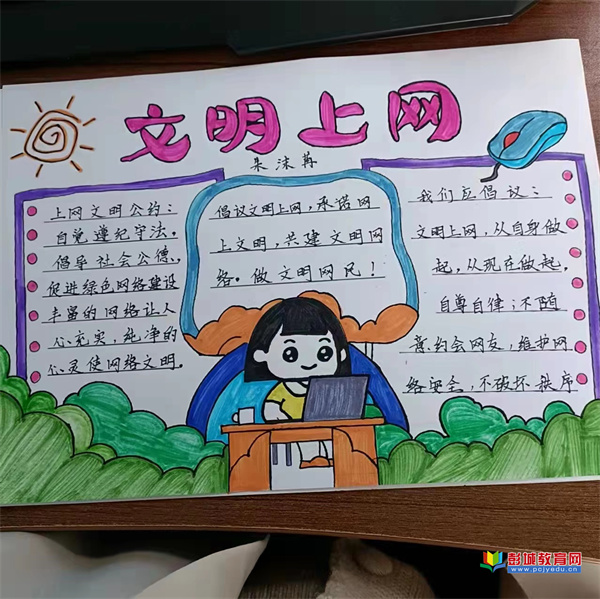 文明上网
朱沫苒
上网文明公约：
自觉遵纪守法。
倡导社会公德、
促进绿色网络建设
丰富的网络让人
心充实，纯净的
心灵使网络文明。
倡议文明上网，承诺网
上文明，共建文明网
络。做文明网民！
我们应倡议：
文明上网，从自身做
起，从现在做起，
自尊自律；不随
意约会网友，维护网
络安全，不破坏秩序
彭城教育网
www.pcjyedu.cn